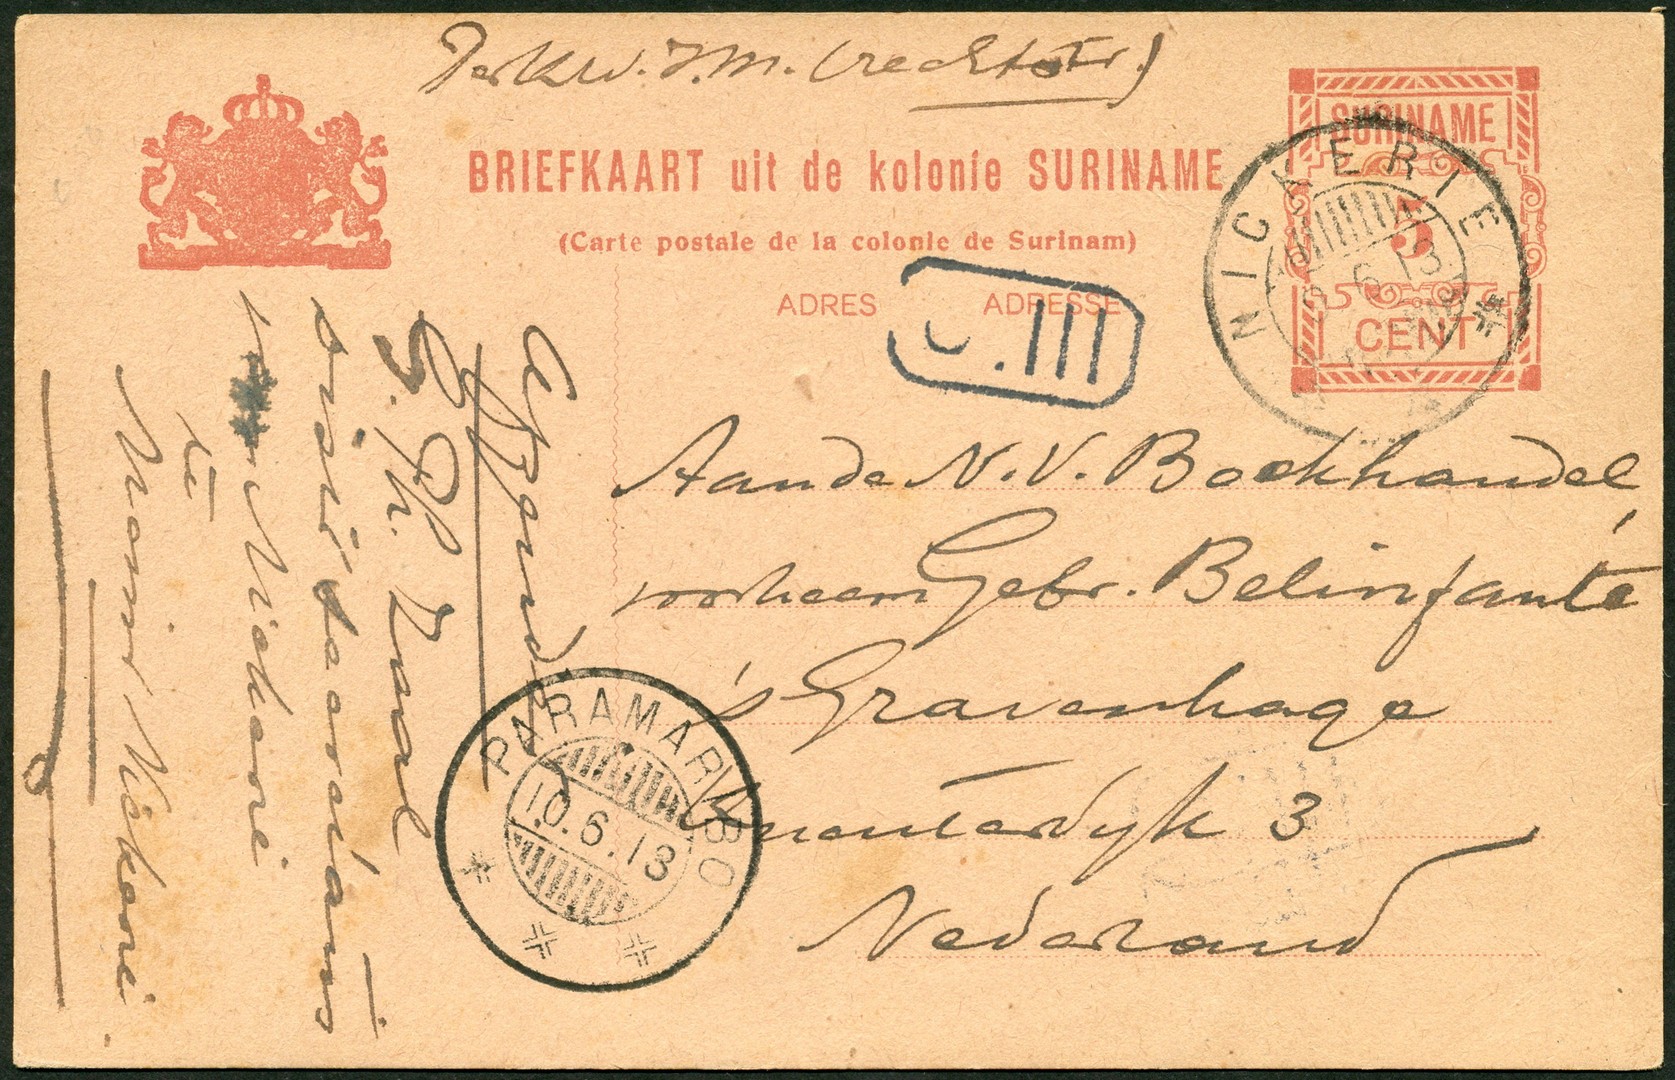 Per K.W.I.M. (rechtstr.)
BRIEFKAART uit de kolonie SURINAME
(Carte postale de la colonie de Surinam)
ADRES ADRESSE
SURINAME
5
CENT
NICKERIE
6.13
C.III
Aan de N.V. Boekhandel
voorheen Gebr. Belinfante
's Gravenhage
3
Nederland
PARAMARIBO
10.6.13
Afzender
G. Ph.
districts
Nickerie
te
Nieuw Nickerie.